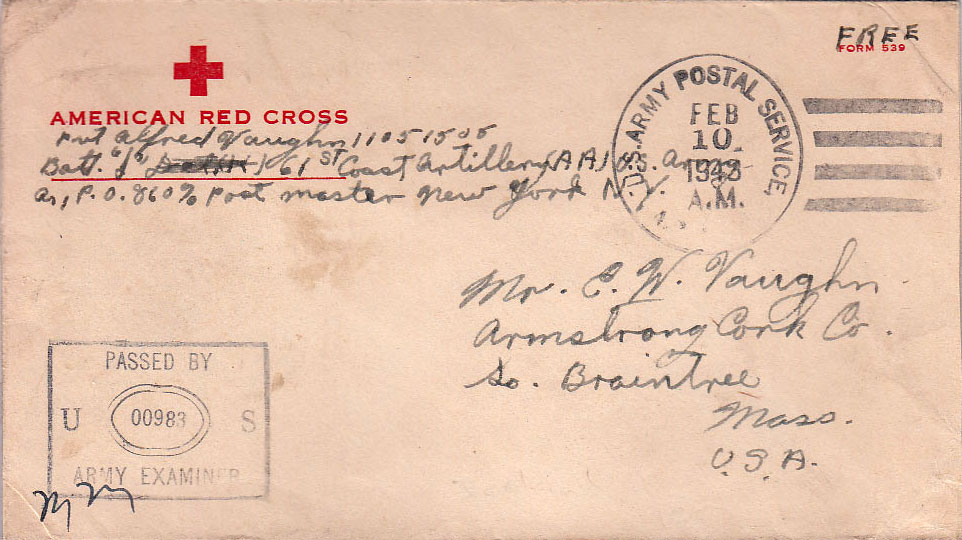 FREE
FORM 539
AMERICAN RED CROSS
Pvt Alfred Vaughn 11051505
Batt. "J" 61ST Coast Artillery (AA) U.S. Army
A.P.O. 860 % Post master New York N.Y.
U.S. ARMY POSTAL SERVICE
FEB
10
1943
A.M.
Mr. E. W. Vaughn
Armstrong Cork Co.
So. Braintree
Mass.
U.S.A.
PASSED BY
U 00983 S
ARMY EXAMINER